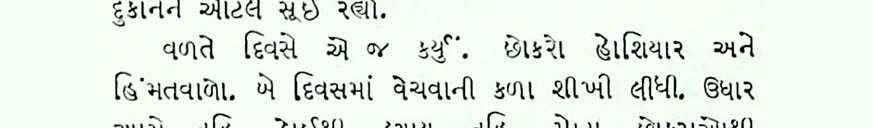 દુકાનને ઓટલે સૂઈ રહ્યો.
વળતે દિવસે એ જ કર્યું. છોકરો હોશિયાર અને
હિંમતવાળો. બે દિવસમાં વેચવાની કળા શીખી લીધી. ઉધાર